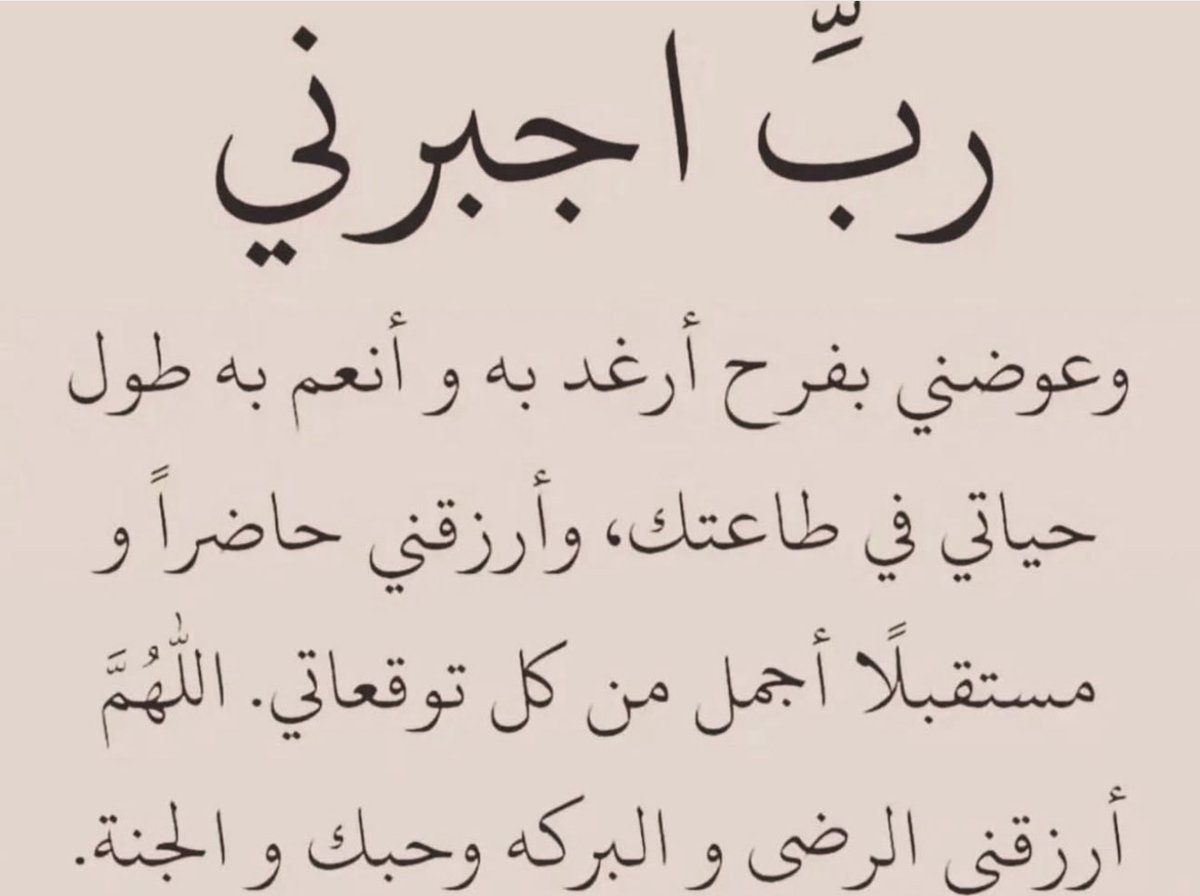 ربِّ اجبرني
وعوضني بفرح أرغد به و أنعم به طول
حياتي في طاعتك، وأرزقني حاضراً و
مستقبلًا أجمل من كل توقعاتي. اللّٰهُمَّ
أرزقني الرضى و البركه وحبك و الجنة.